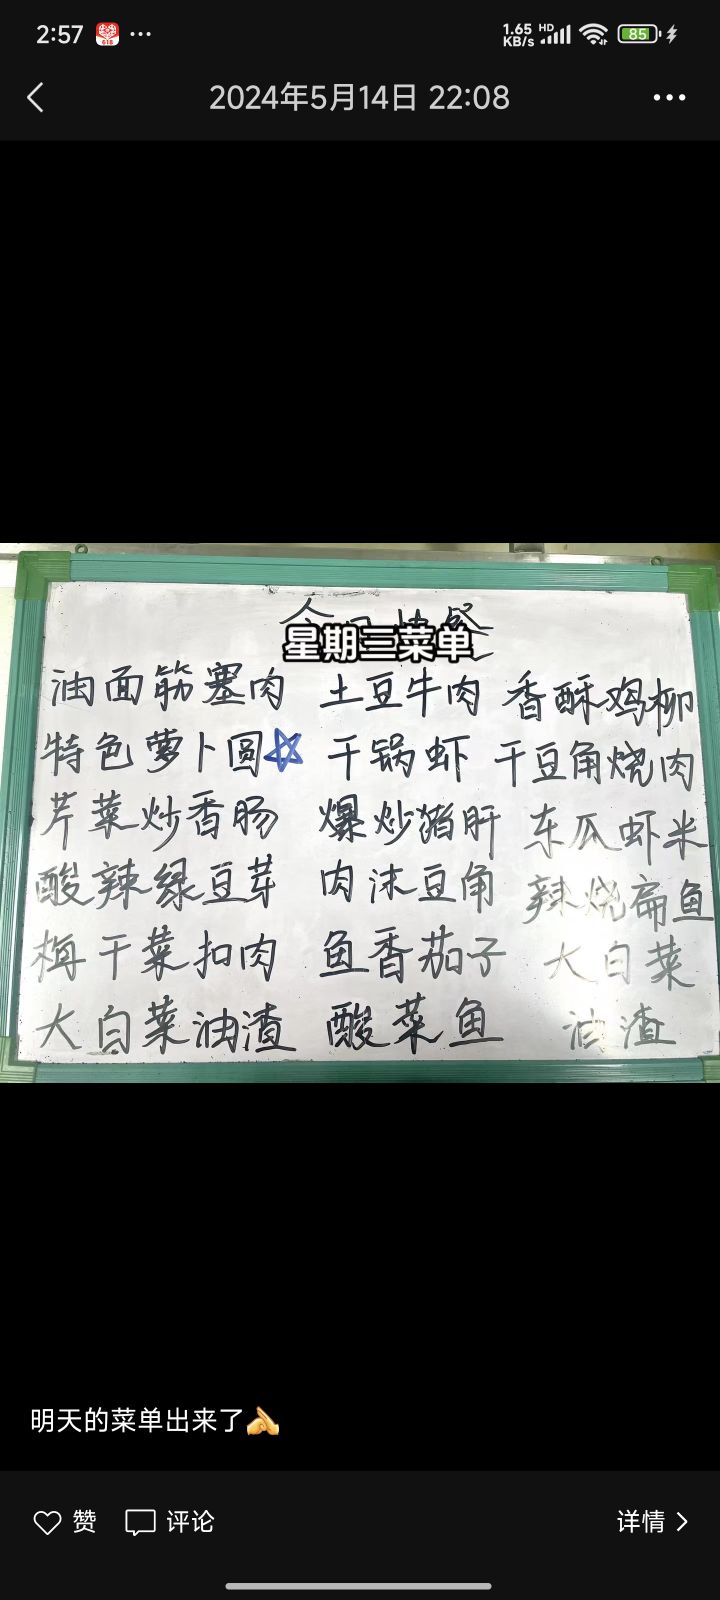 2:57 618 ... 1.65 KB/s HD 85
2024年5月14日 22:08
今日快餐
星期三菜单
油面筋塞肉 土豆牛肉 香酥鸡柳
特色萝卜圆 干锅虾 干豆角烧肉
芹菜炒香肠 爆炒猪肝 东瓜虾米
酸辣绿豆芽 肉沫豆角 辣烧扁鱼
梅干菜扣肉 鱼香茄子 大白菜
大白菜油渣 酸菜鱼 油渣
明天的菜单出来了
赞 评论 详情